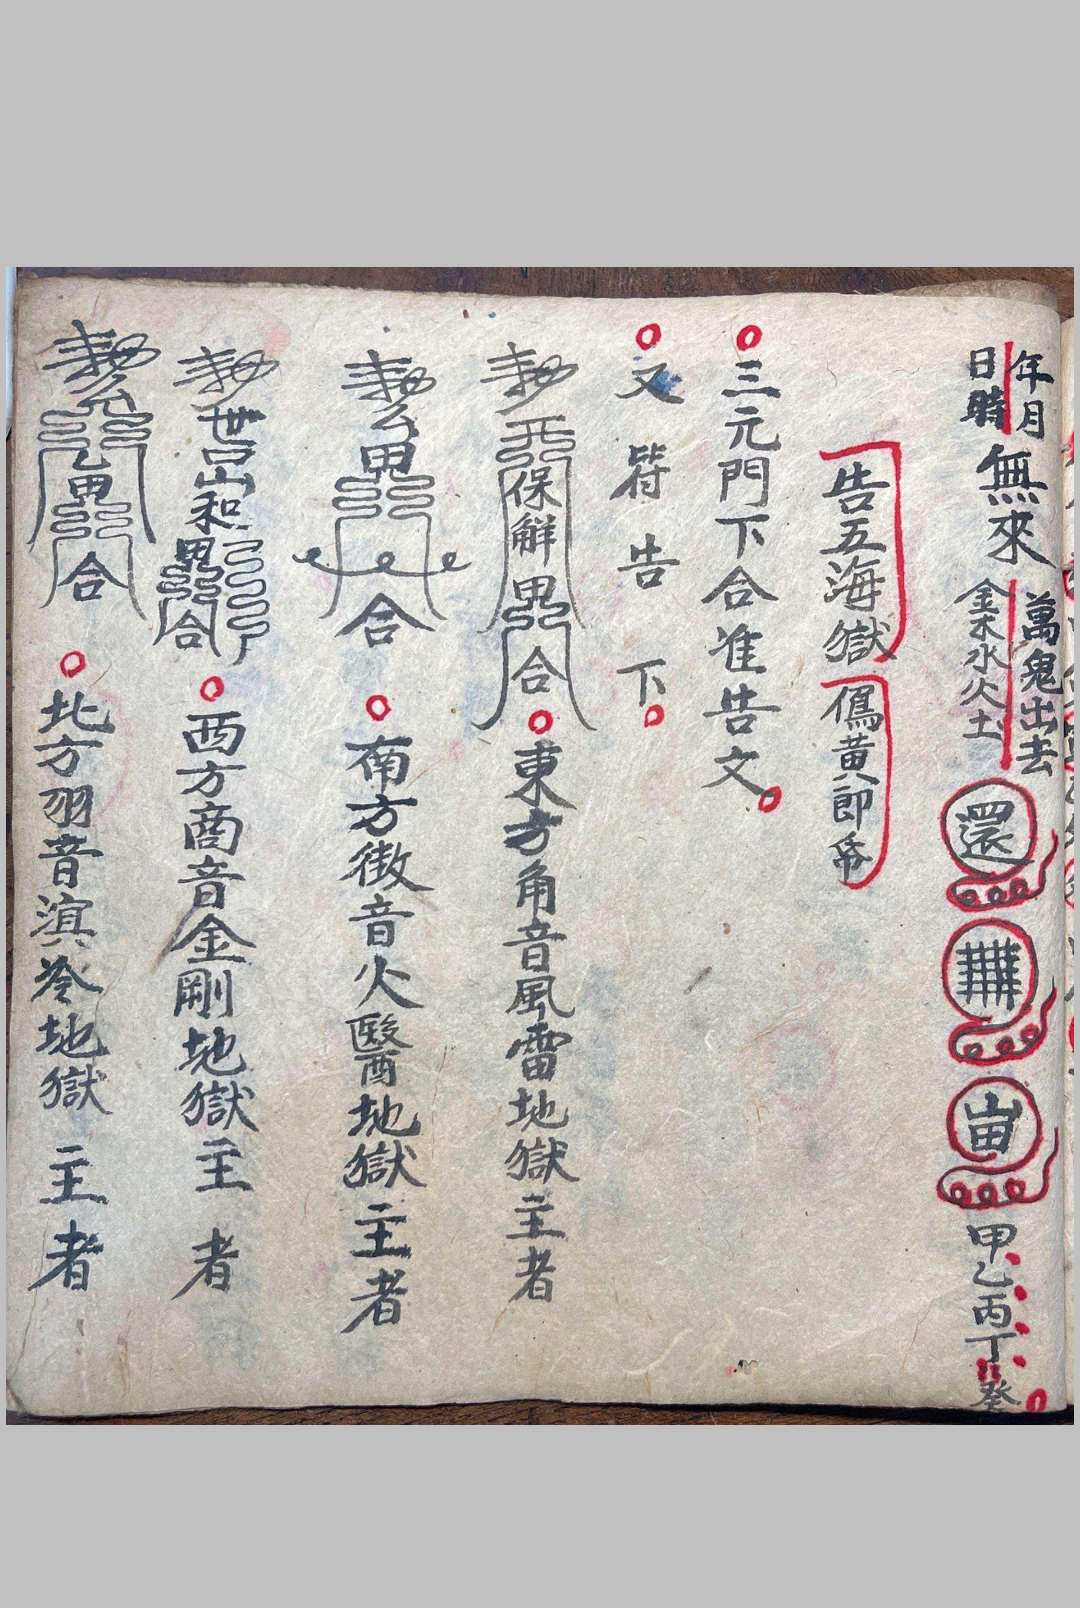 年月
日時
無來
萬鬼出去
金木水火土
還
甲乙丙丁癸
告五海獄
黃郎帝
三元門下合准告文
文符告下
保解 合
東方角音風雷地獄主者
合
南方徵音火醫地獄主者
山和 合
西方商音金剛地獄主者
合
北方羽音溟冷地獄主者